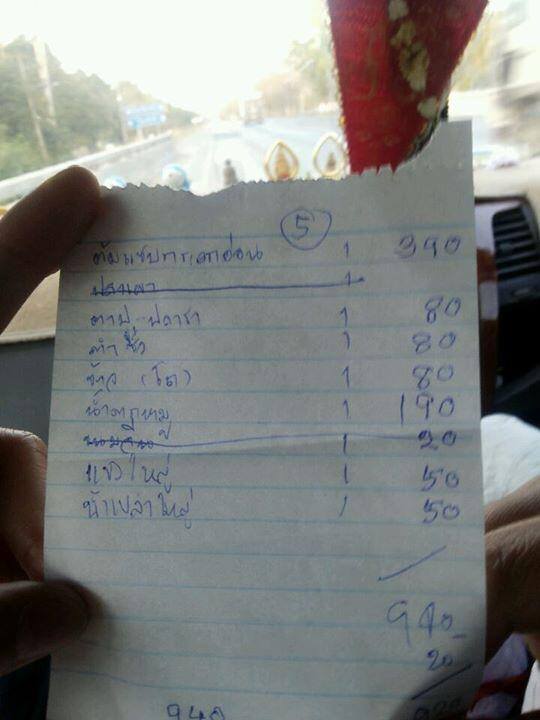 5
ต้มแซ่บกระดูกอ่อน 1 390
ปลาเผา 1
ตำปู-ปลาร้า 1 80
ตำซั่ว 1 80
ข้าว (โถ) 1 80
น้ำตกหมู 1 190
ขนมจีน 1 20
แข็งใหญ่ 1 50
น้ำเปล่าใหญ่ 1 50
940
20
940 920